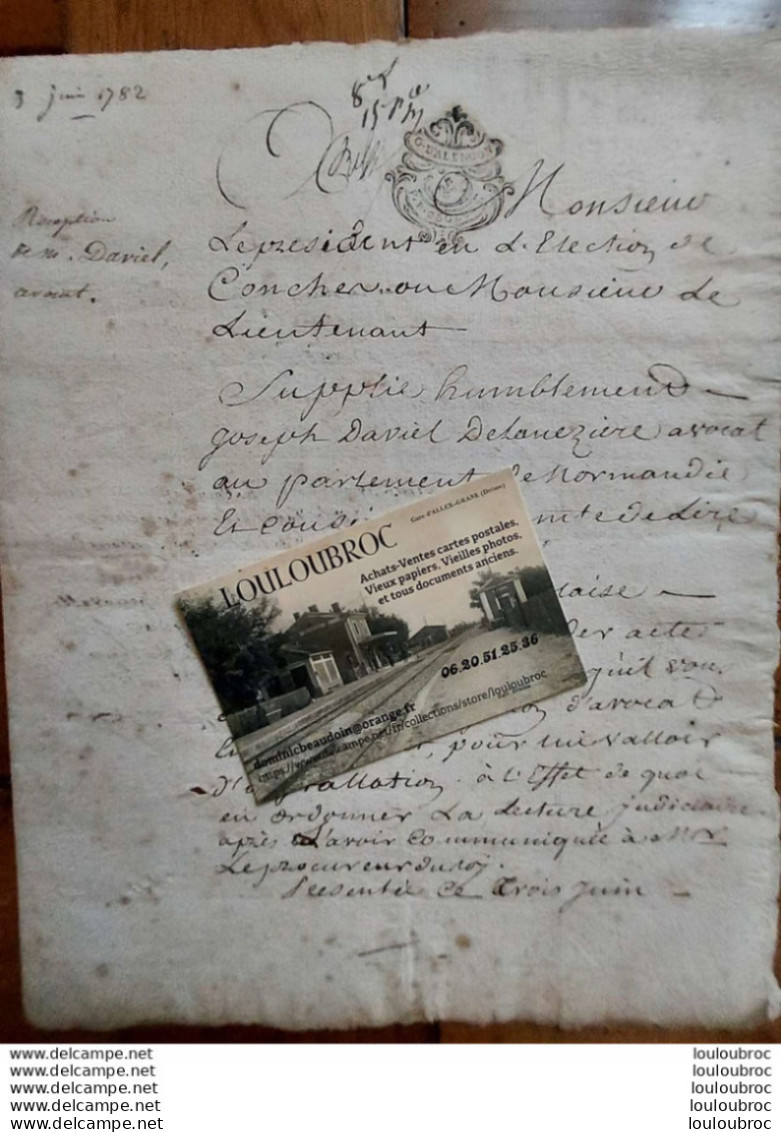 3 juin 1782
Réception
de m. Daviel,
avocat.
G. D'ALENÇON
Monsieur
Le president en L'Election de
Conches ou Monsieur Le
Lieutenant
Supplie humblement
joseph Daviel Delanezière avocat
au parlement de Normandie
Et de Lire
aise
der acte
qu'il vou
d'avocat
pour lui valloir
à L'Effet de quoi
en ordonner La Lecture judiciaire
après L'avoir Communiquée à Mr
Le procureur du roy.
Presentée Ce Trois juin
Gare d'ALLEX-GRANE (Drôme)
LOULOUBROC
Achats-Ventes cartes postales,
Vieux papiers, Vieilles photos,
et tous documents anciens.
06.20.51.25.36
dominicbeaudoin@orange.fr
https://www.delcampe.net/fr/collections/store/louloubroc
www.delcampe.net louloubroc
www.delcampe.net louloubroc
www.delcampe.net louloubroc
www.delcampe.net louloubroc
www.delcampe.net louloubroc